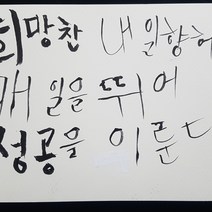 희망찬 내일향해
매일을 뛰어
성공을 이룬다